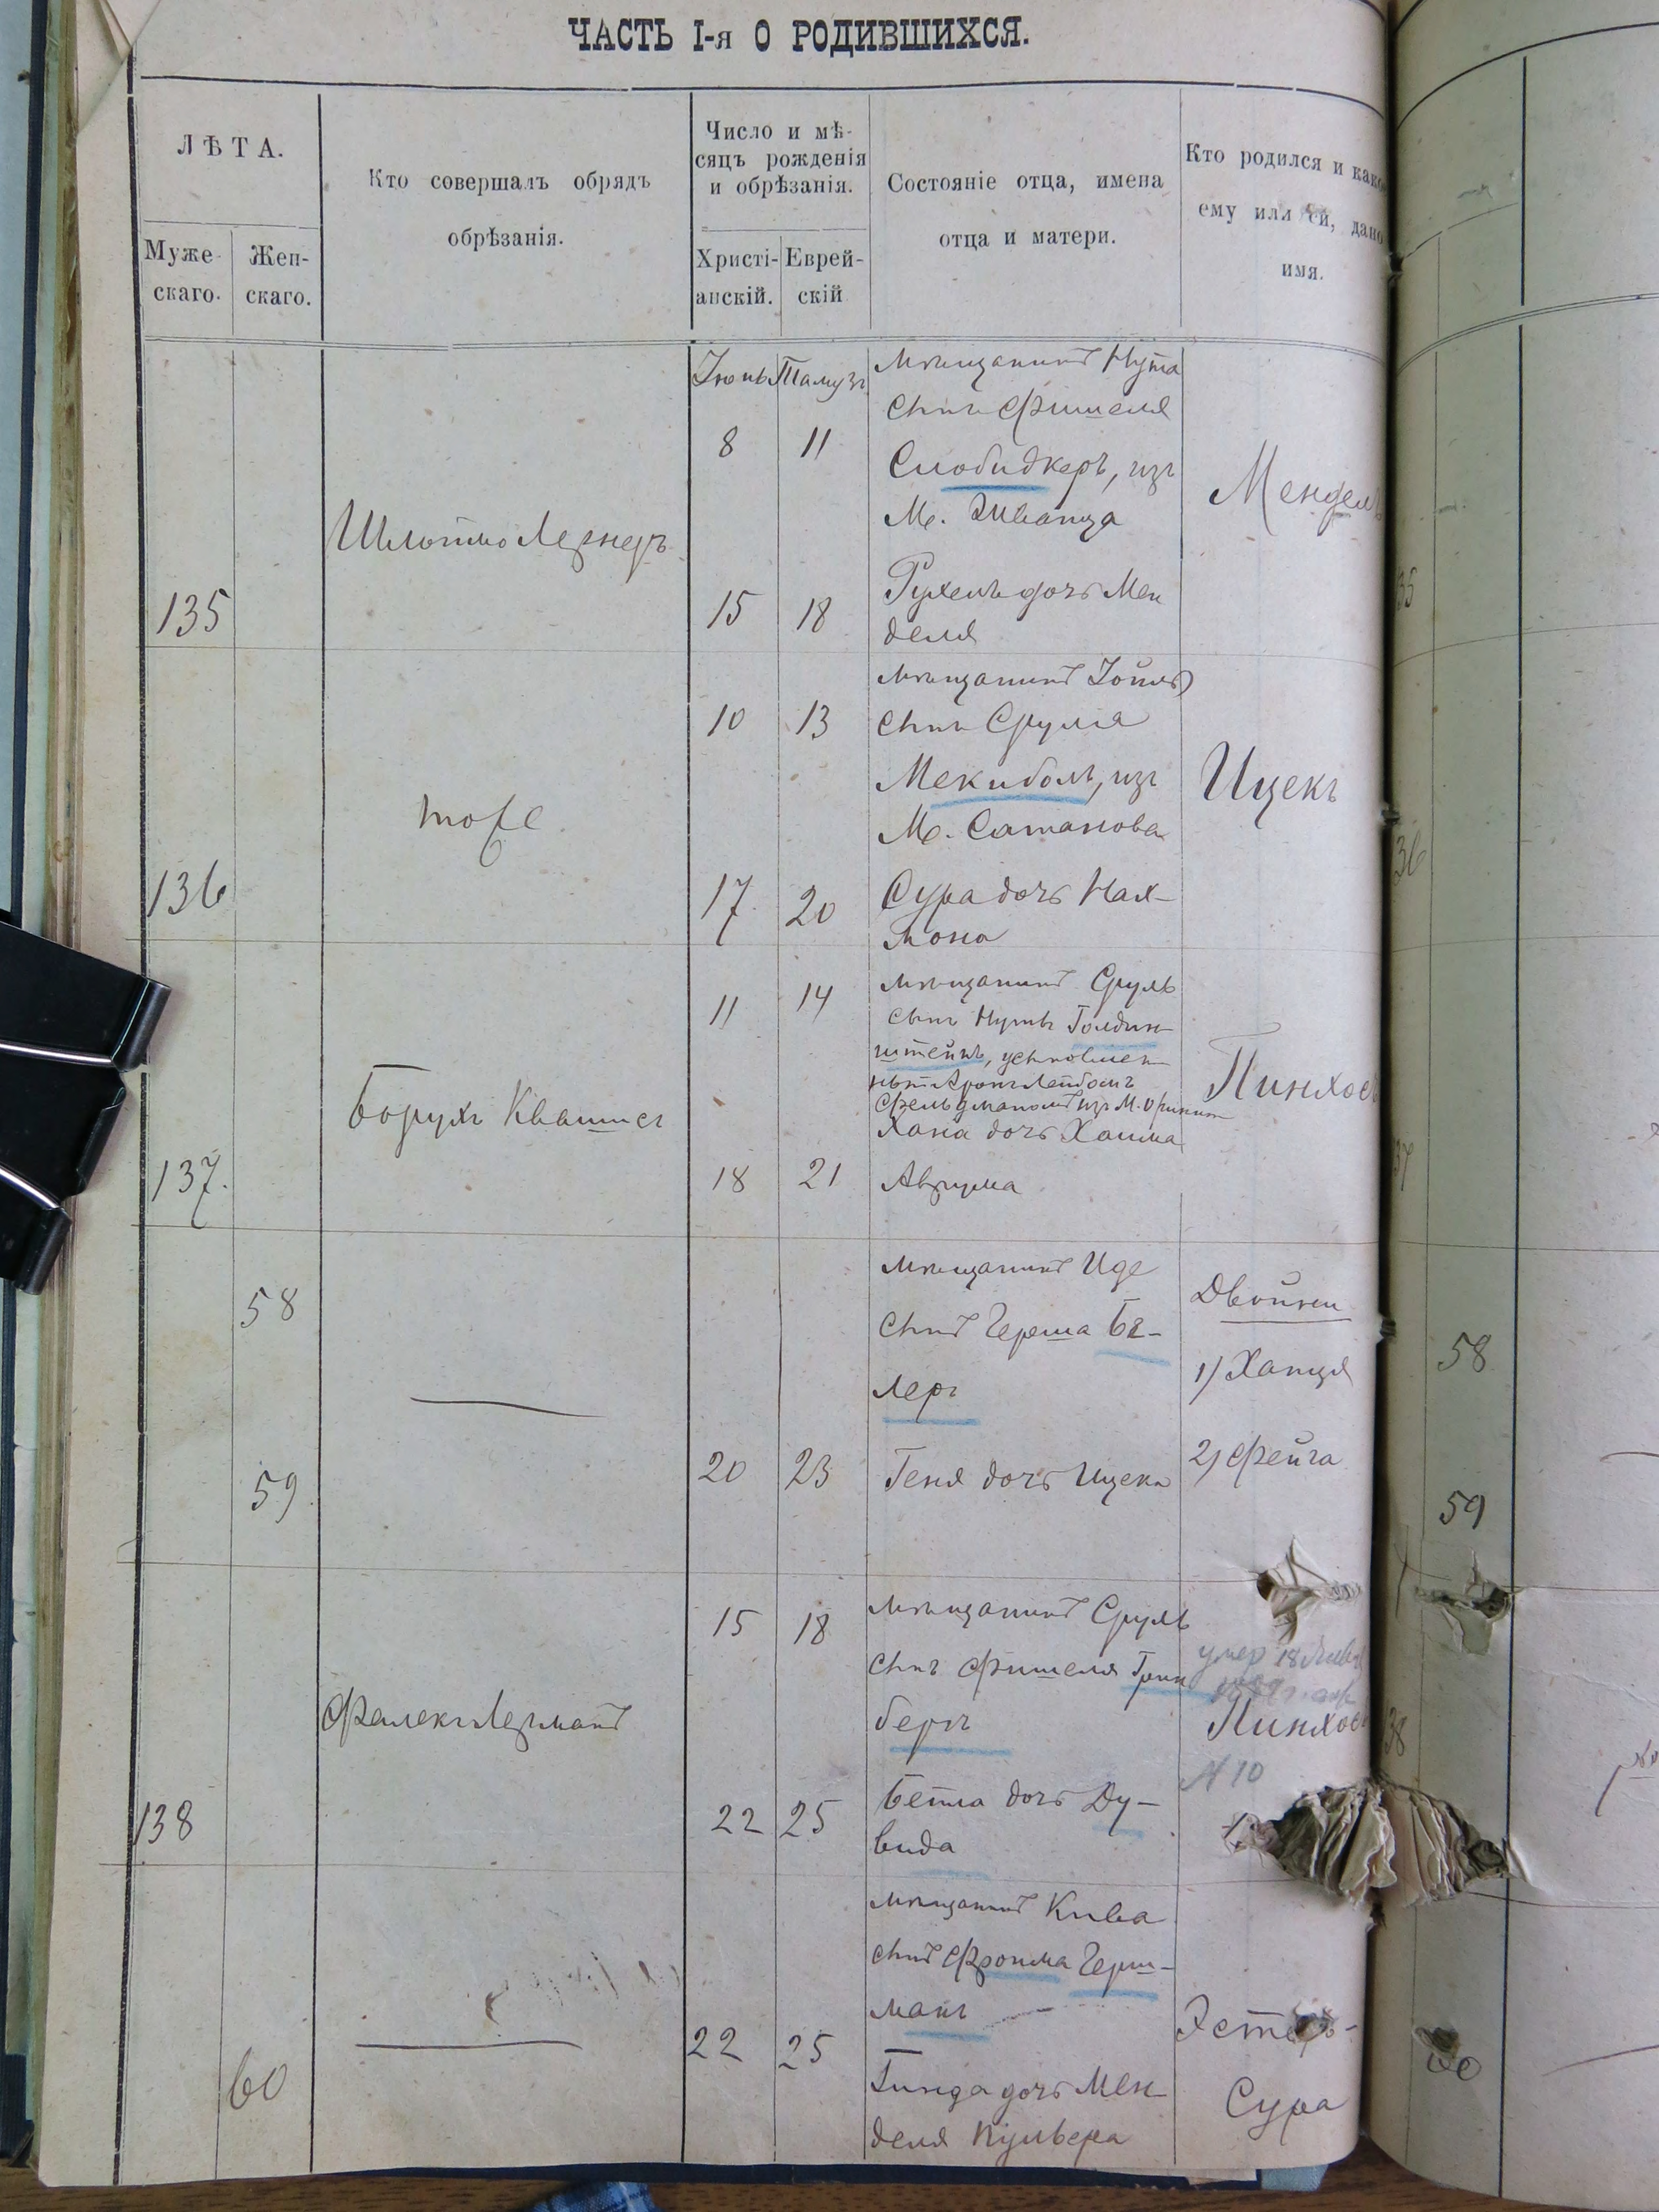 ЧАСТЬ I-я О РОДИВШИХСЯ.
ЛѢТА.
Муже-
скаго.
Жен-
скаго.
Кто совершалъ обрядъ
обрѣзанія.
Число и мѣ-
сяцъ рожденія
и обрѣзанія.
Христі-
анскій.
Еврей-
скій
Состояніе отца, имена
отца и матери.
Кто родился и како
ему или ей, дано
имя.
135
Лернеръ
Іюнь Тамузъ
8 11
15 18
мѣщанинъ Нута
сынъ Фишеля
Слобидкеръ, изъ
М. Жванца
Рухель дочь Мен
деля
Мендель
136
тоже
10 13
17. 20
мѣщанинъ Іойль
сынъ Срула
Мекиболъ, изъ
М. Сатанова
Сура дочь Нах-
мона
Ицекъ
137.
Борухъ Квашисъ
11 14
18 21
мѣщанинъ Сруль
сынъ Нуты Голдин-
штейнъ, усыновлен-
ный Арон Лейбомъ
Фельдманомъ изъ М.
Хана дочь Хаима
Аврума
Пинхос
58
59
20 23
мѣщанинъ Иде
сынъ Герша Бе-
леръ
Геня дочь Ицека
Двойни
1) Ханця
2) Фейга
138
Фалекъ Лерманъ
15 18
22 25
мѣщанинъ Сруль
сынъ Фишеля Грин
бергъ
Бейла дочь Ду-
вида
умер 18
Пинхос
№ 10
60
22 25
мѣщанинъ Кива
сынъ Фроима Герш-
манъ
Гинда дочь Мен-
деля Кульвера
Эстеръ-
Сура
35
36
37
58
59
38
60